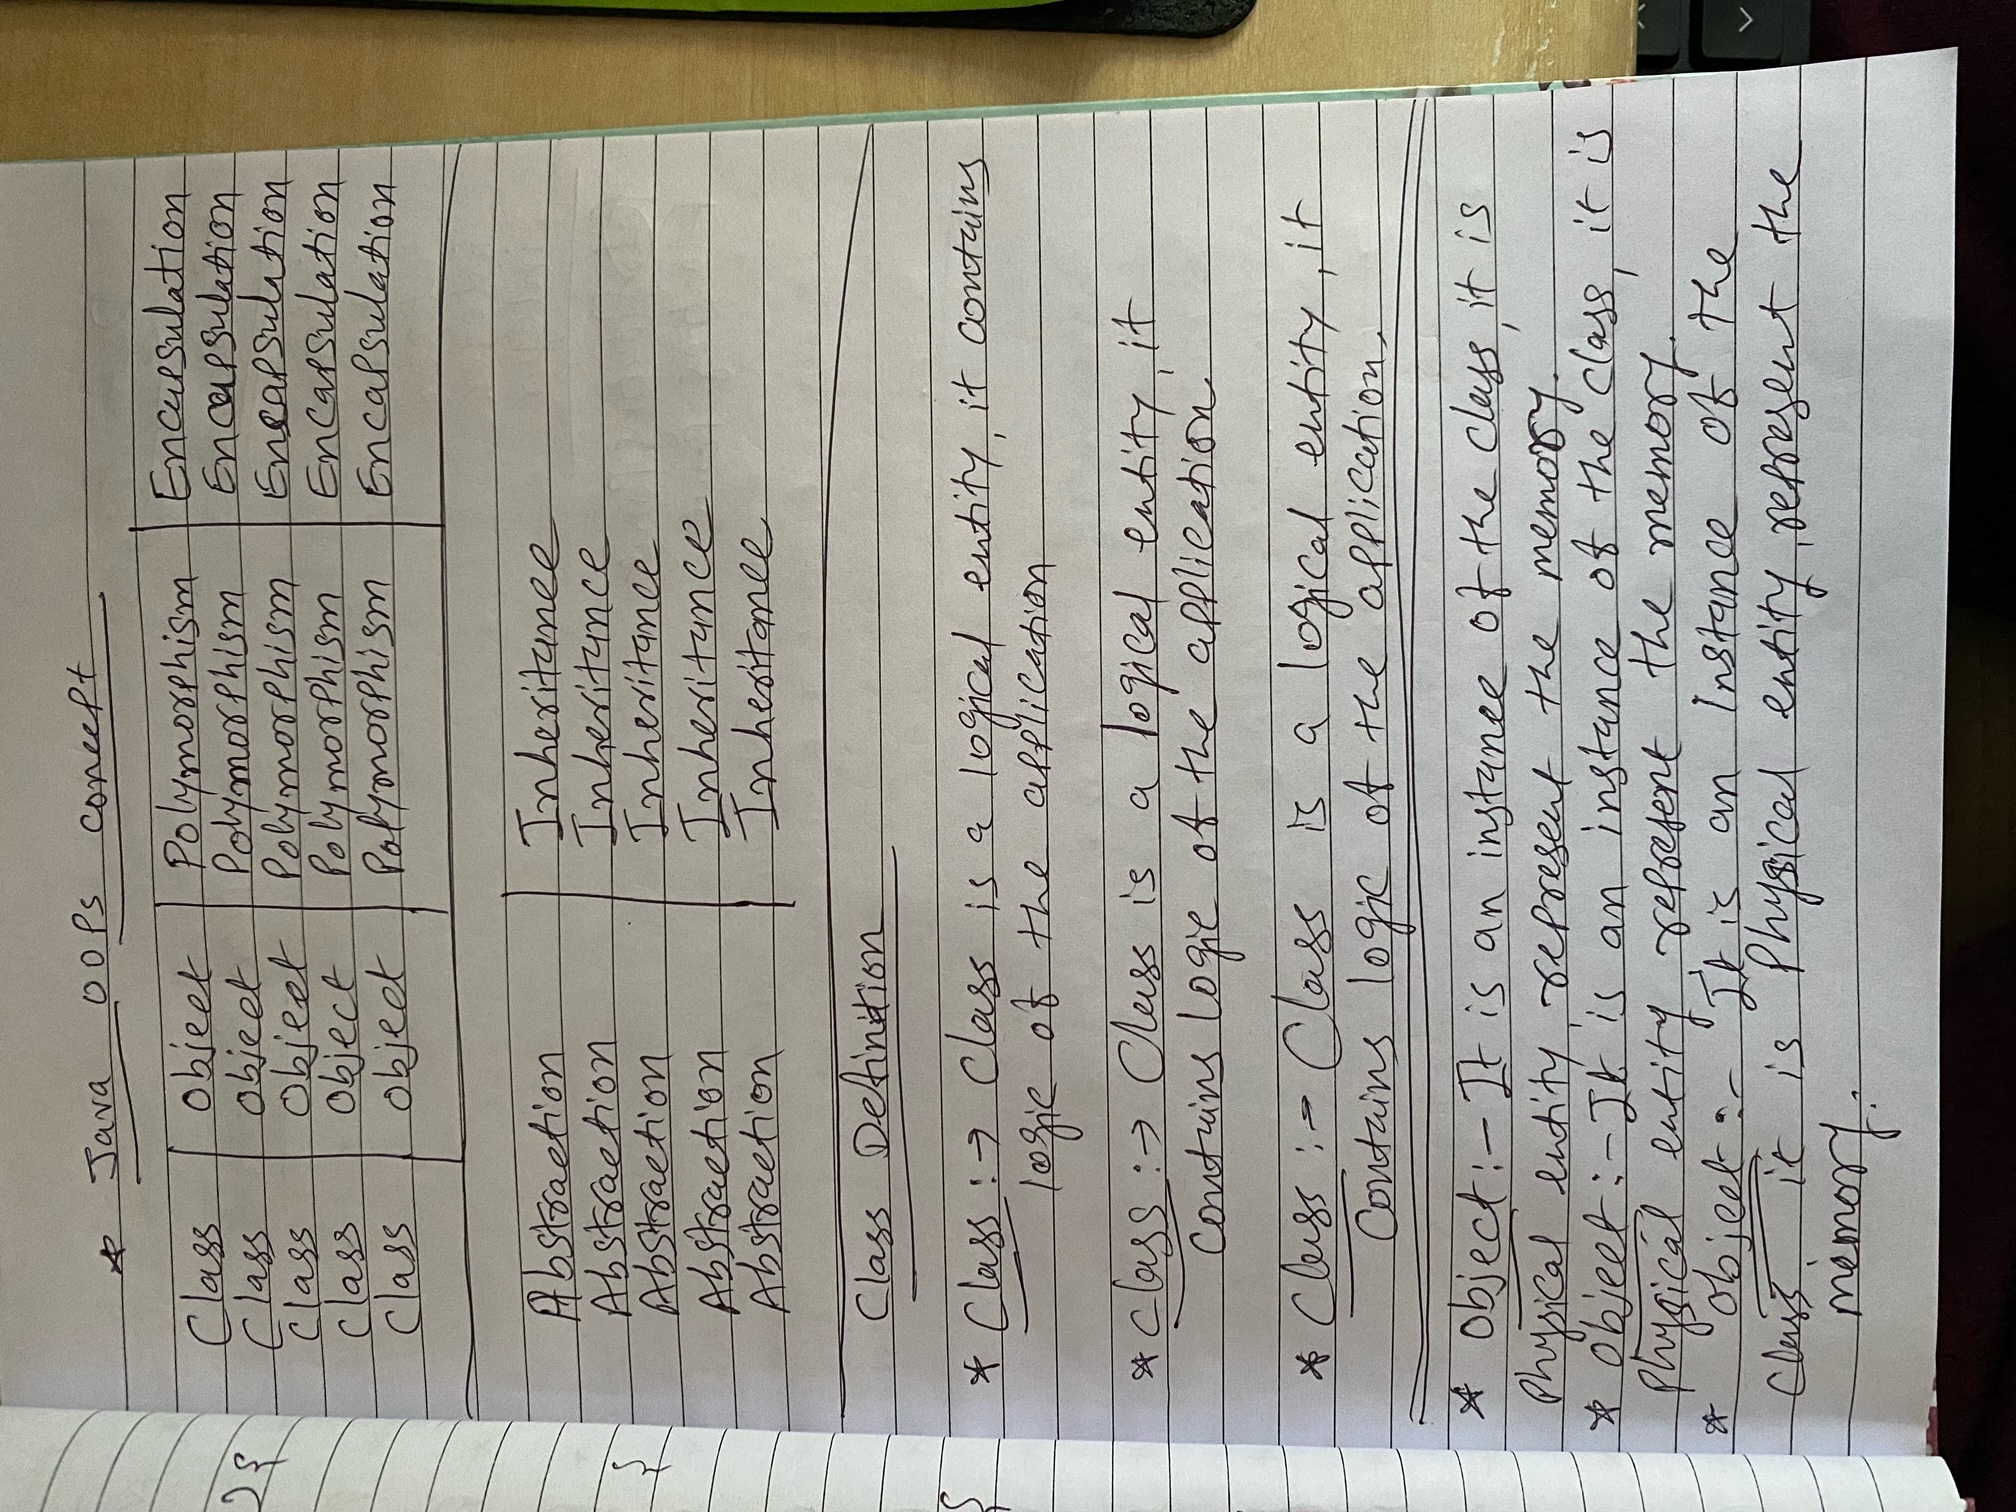 * Java OOPs concept
Class | Object | Polymorphism | Encapsulation
Class | Object | Polymorphism | Encapsulation
Class | Object | Polymorphism | Encapsulation
Class | Object | Polymorphism | Encapsulation
Class | Object | Polymorphism | Encapsulation
Abstraction | Inheritance
Abstraction | Inheritance
Abstraction | Inheritance
Abstraction | Inheritance
Abstraction | Inheritance
Class Definition
* Class :→ Class is a logical entity, it contains
logic of the application
* Class :→ Class is a logical entity, it
contains logic of the application.
* Class :- Class is a logical entity, it
contains logic of the application.
* Object :- It is an instance of the class, it is
Physical entity, represent the memory.
* Object :- It is an instance of the class, it is
Physical entity, represent the memory.
* Object :- It is an instance of the
class, it is Physical entity, represent the
memory.